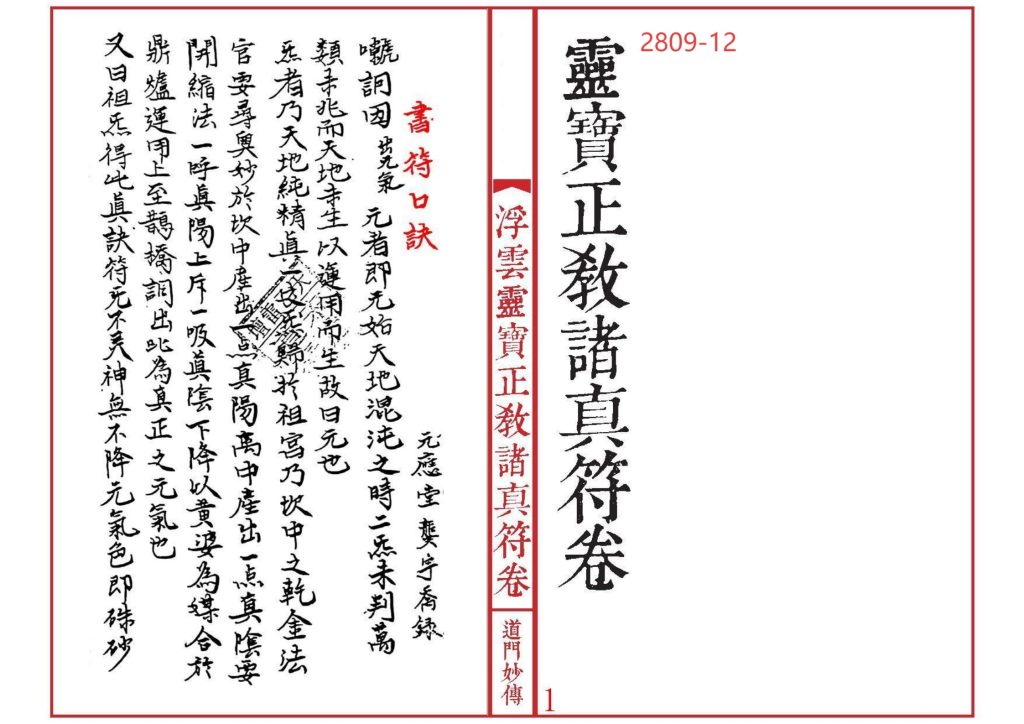 2809-12
靈寶正教諸真符卷
浮雲靈寶正教諸真符卷
道門妙傳
1
書符口訣
元應堂龔宇喬錄
嚱詞因出元氣 元者即元始天地混沌之時二炁未判萬
類未兆而天地未生以運用而生故曰元也
炁者乃天地純精真一炁歸於祖宮乃坎中之乾金法
官要尋奧妙於坎中產出一点真陽离中產出一点真陰要
開縮法一呼真陽上斥一吸真陰下降以黄婆為媒合於
鼎爐運用上至鵲橋詞出此為真正之元氣也
又曰祖炁得此真訣符无不灵神無不降元氣色即硃砂